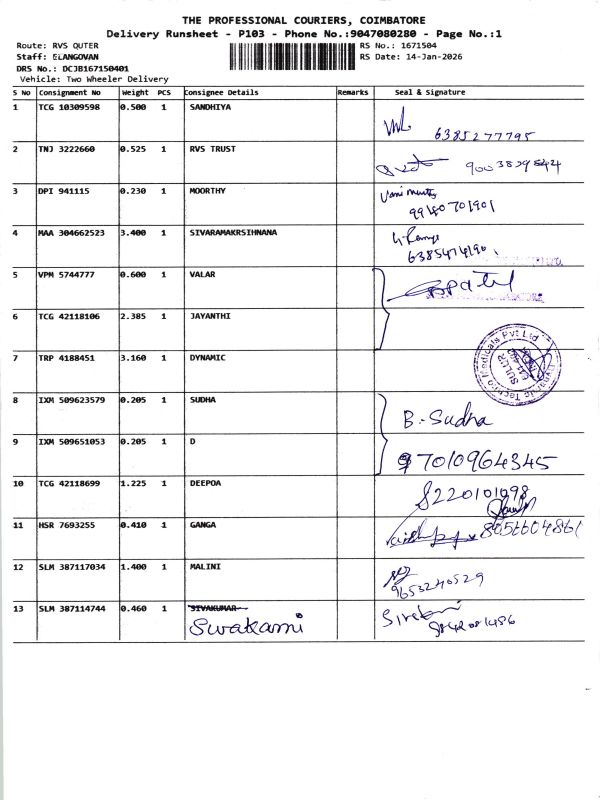 THE PROFESSIONAL COURIERS, COIMBATORE
Delivery Runsheet - P103 - Phone No.:9047080280 - Page No.:1
Route: RVS QUTER RS No.: 1671504
Staff: ELANGOVAN RS Date: 14-Jan-2026
DRS No.: DCJB167150401
Vehicle: Two Wheeler Delivery
S No Consignment No Weight PCS Consignee Details Remarks Seal & Signature
1 TCG 10309598 0.500 1 SANDHIYA
6385277795
2 TNJ 3222660 0.525 1 RVS TRUST
9003829842
3 DPI 941115 0.230 1 MOORTHY
4 MAA 304662523 3.400 1 SIVARAMAKRSIHNANA
5 VPM 5744777 0.600 1 VALAR
6 TCG 42118106 2.385 1 JAYANTHI
7 TRP 4188451 3.160 1 DYNAMIC
Dynamic Techno Medicals Pvt Ltd
SULUR
8 IXM 509623579 0.205 1 SUDHA
B. Sudha
9 IXM 509651053 0.205 1 D
7010964345
10 TCG 42118699 1.225 1 DEEPOA
8220101098
11 HSR 7693255 0.410 1 GANGA
12 SLM 387117034 1.400 1 MALINI
9653240529
13 SLM 387114744 0.460 1 SIVAKUMAR
Swakami